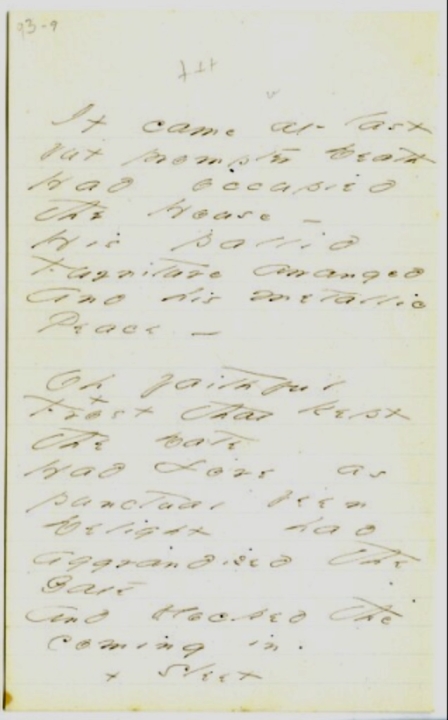 93-9
It came at last
but prompter Death
had occupied
the House -
His pallid
Furniture arranged
And his metallic
Peace -
Oh faithful
+ Frost that kept
the Date
Had Love as
punctual been
Delight had
aggrandized the
Gate
And blocked the
coming in.
+ Sleet